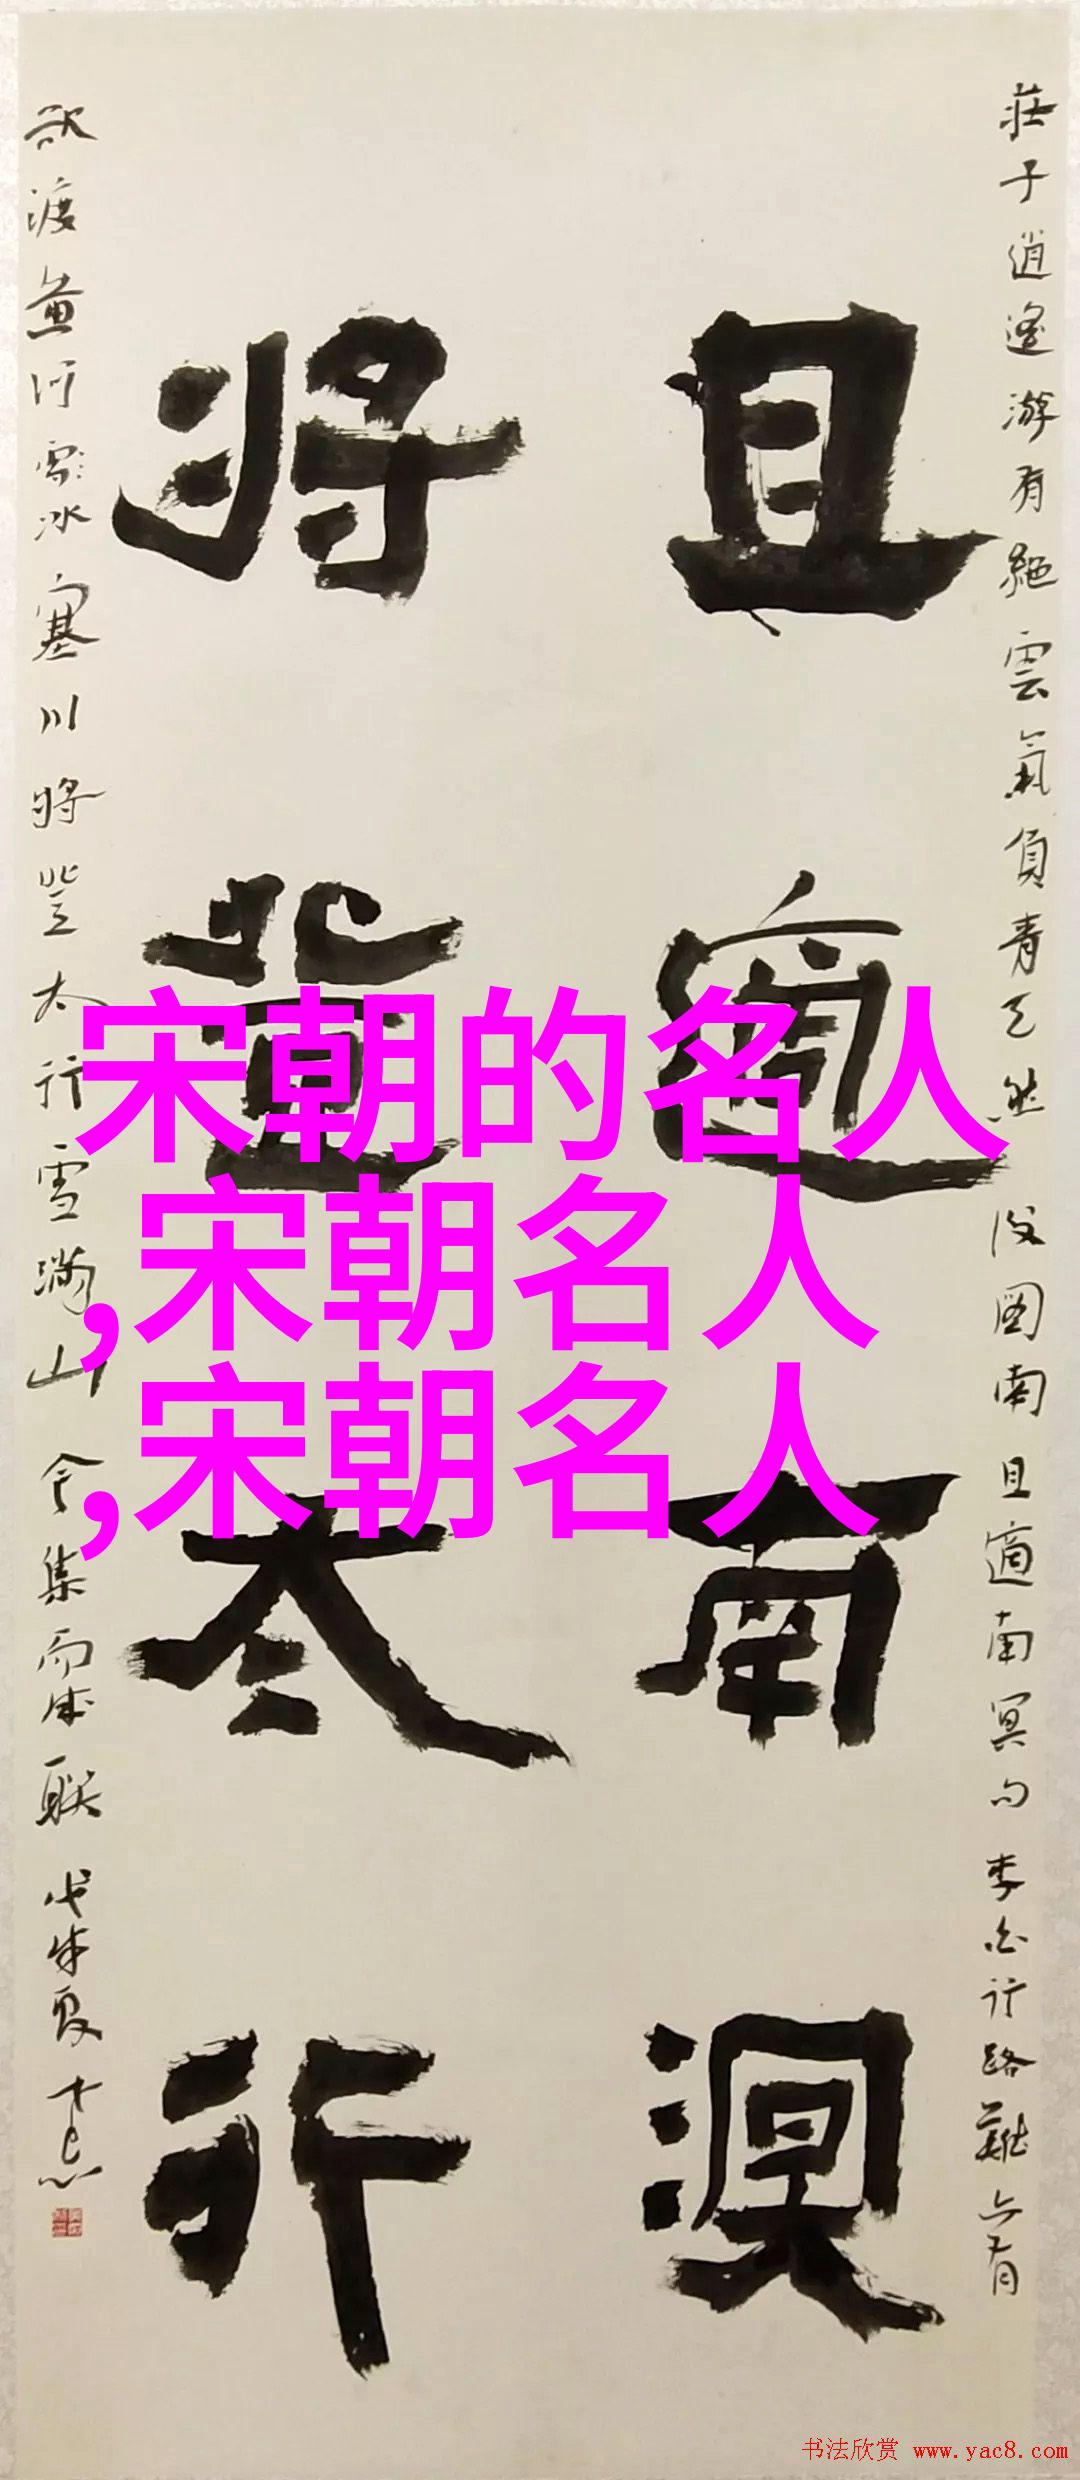 莊子逍遥游有絕雲氣負青天然後圖南且適南冥句李白行路難亦有
且適南溟
將登太行
欲渡黃河冰塞川將登太行雪滿山合集而成聯戊戌夏
宋朝的名人
,宋朝名人
,宋朝名人
书法欣赏 www.yac8.com